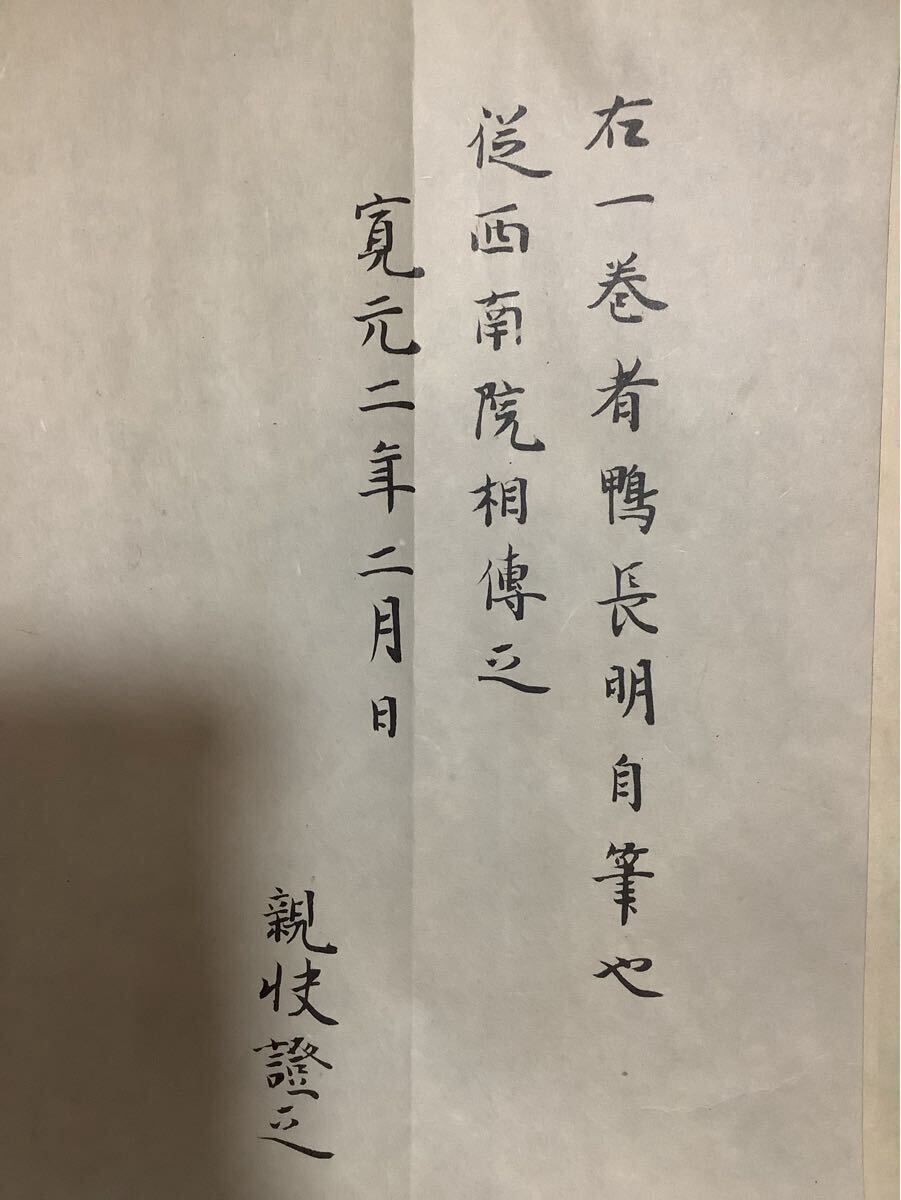 右一巻者鴨長明自筆也
従西南院相傳之
寛元二年二月日
親快證之